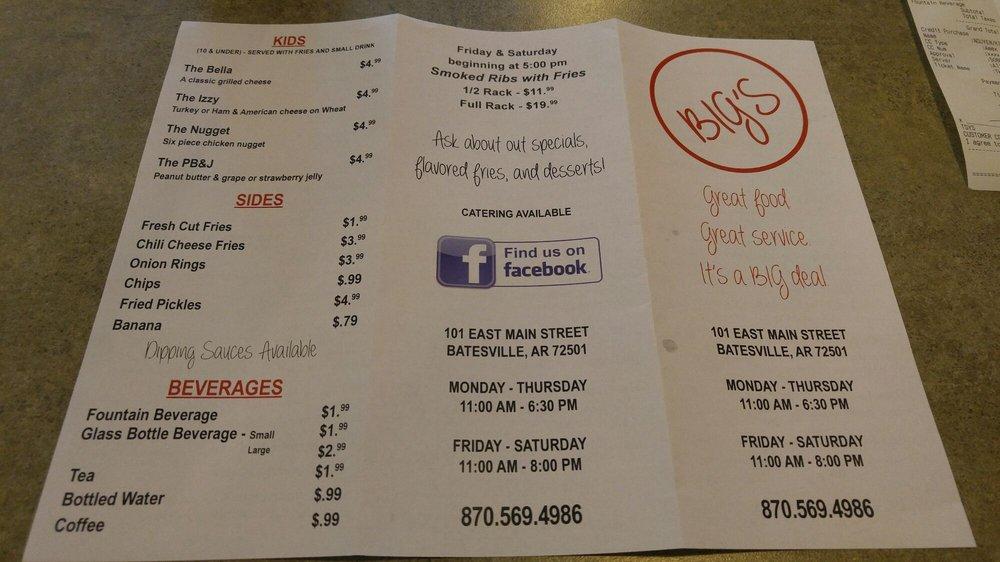 KIDS
(10 & UNDER) - SERVED WITH FRIES AND SMALL DRINK
The Bella $4.99
A classic grilled cheese
The Izzy $4.99
Turkey or Ham & American cheese on Wheat
The Nugget $4.99
Six piece chicken nugget
The PB&J $4.99
Peanut butter & grape or strawberry jelly
SIDES
Fresh Cut Fries $1.99
Chili Cheese Fries $3.99
Onion Rings $3.99
Chips $.99
Fried Pickles $4.99
Banana $.79
Dipping Sauces Available
BEVERAGES
Fountain Beverage $1.99
Glass Bottle Beverage - Small $1.99
Large $2.99
Tea $1.99
Bottled Water $.99
Coffee $.99
Friday & Saturday
beginning at 5:00 pm
Smoked Ribs with Fries
1/2 Rack - $11.99
Full Rack - $19.99
Ask about out specials,
flavored fries, and desserts!
CATERING AVAILABLE
f Find us on
facebook
101 EAST MAIN STREET
BATESVILLE, AR 72501
MONDAY - THURSDAY
11:00 AM - 6:30 PM
FRIDAY - SATURDAY
11:00 AM - 8:00 PM
870.569.4986
BIG'S
Great food
Great service.
It's a BIG deal
101 EAST MAIN STREET
BATESVILLE, AR 72501
MONDAY - THURSDAY
11:00 AM - 6:30 PM
FRIDAY - SATURDAY
11:00 AM - 8:00 PM
870.569.4986
Fountain Beverage
Subtotal
Total Taxes
Grand Total
Credit Purchase
Name
CC Type
CC Num
Approval
Server
Ticket Name
X
TSYS
CUSTOMER
I agree to